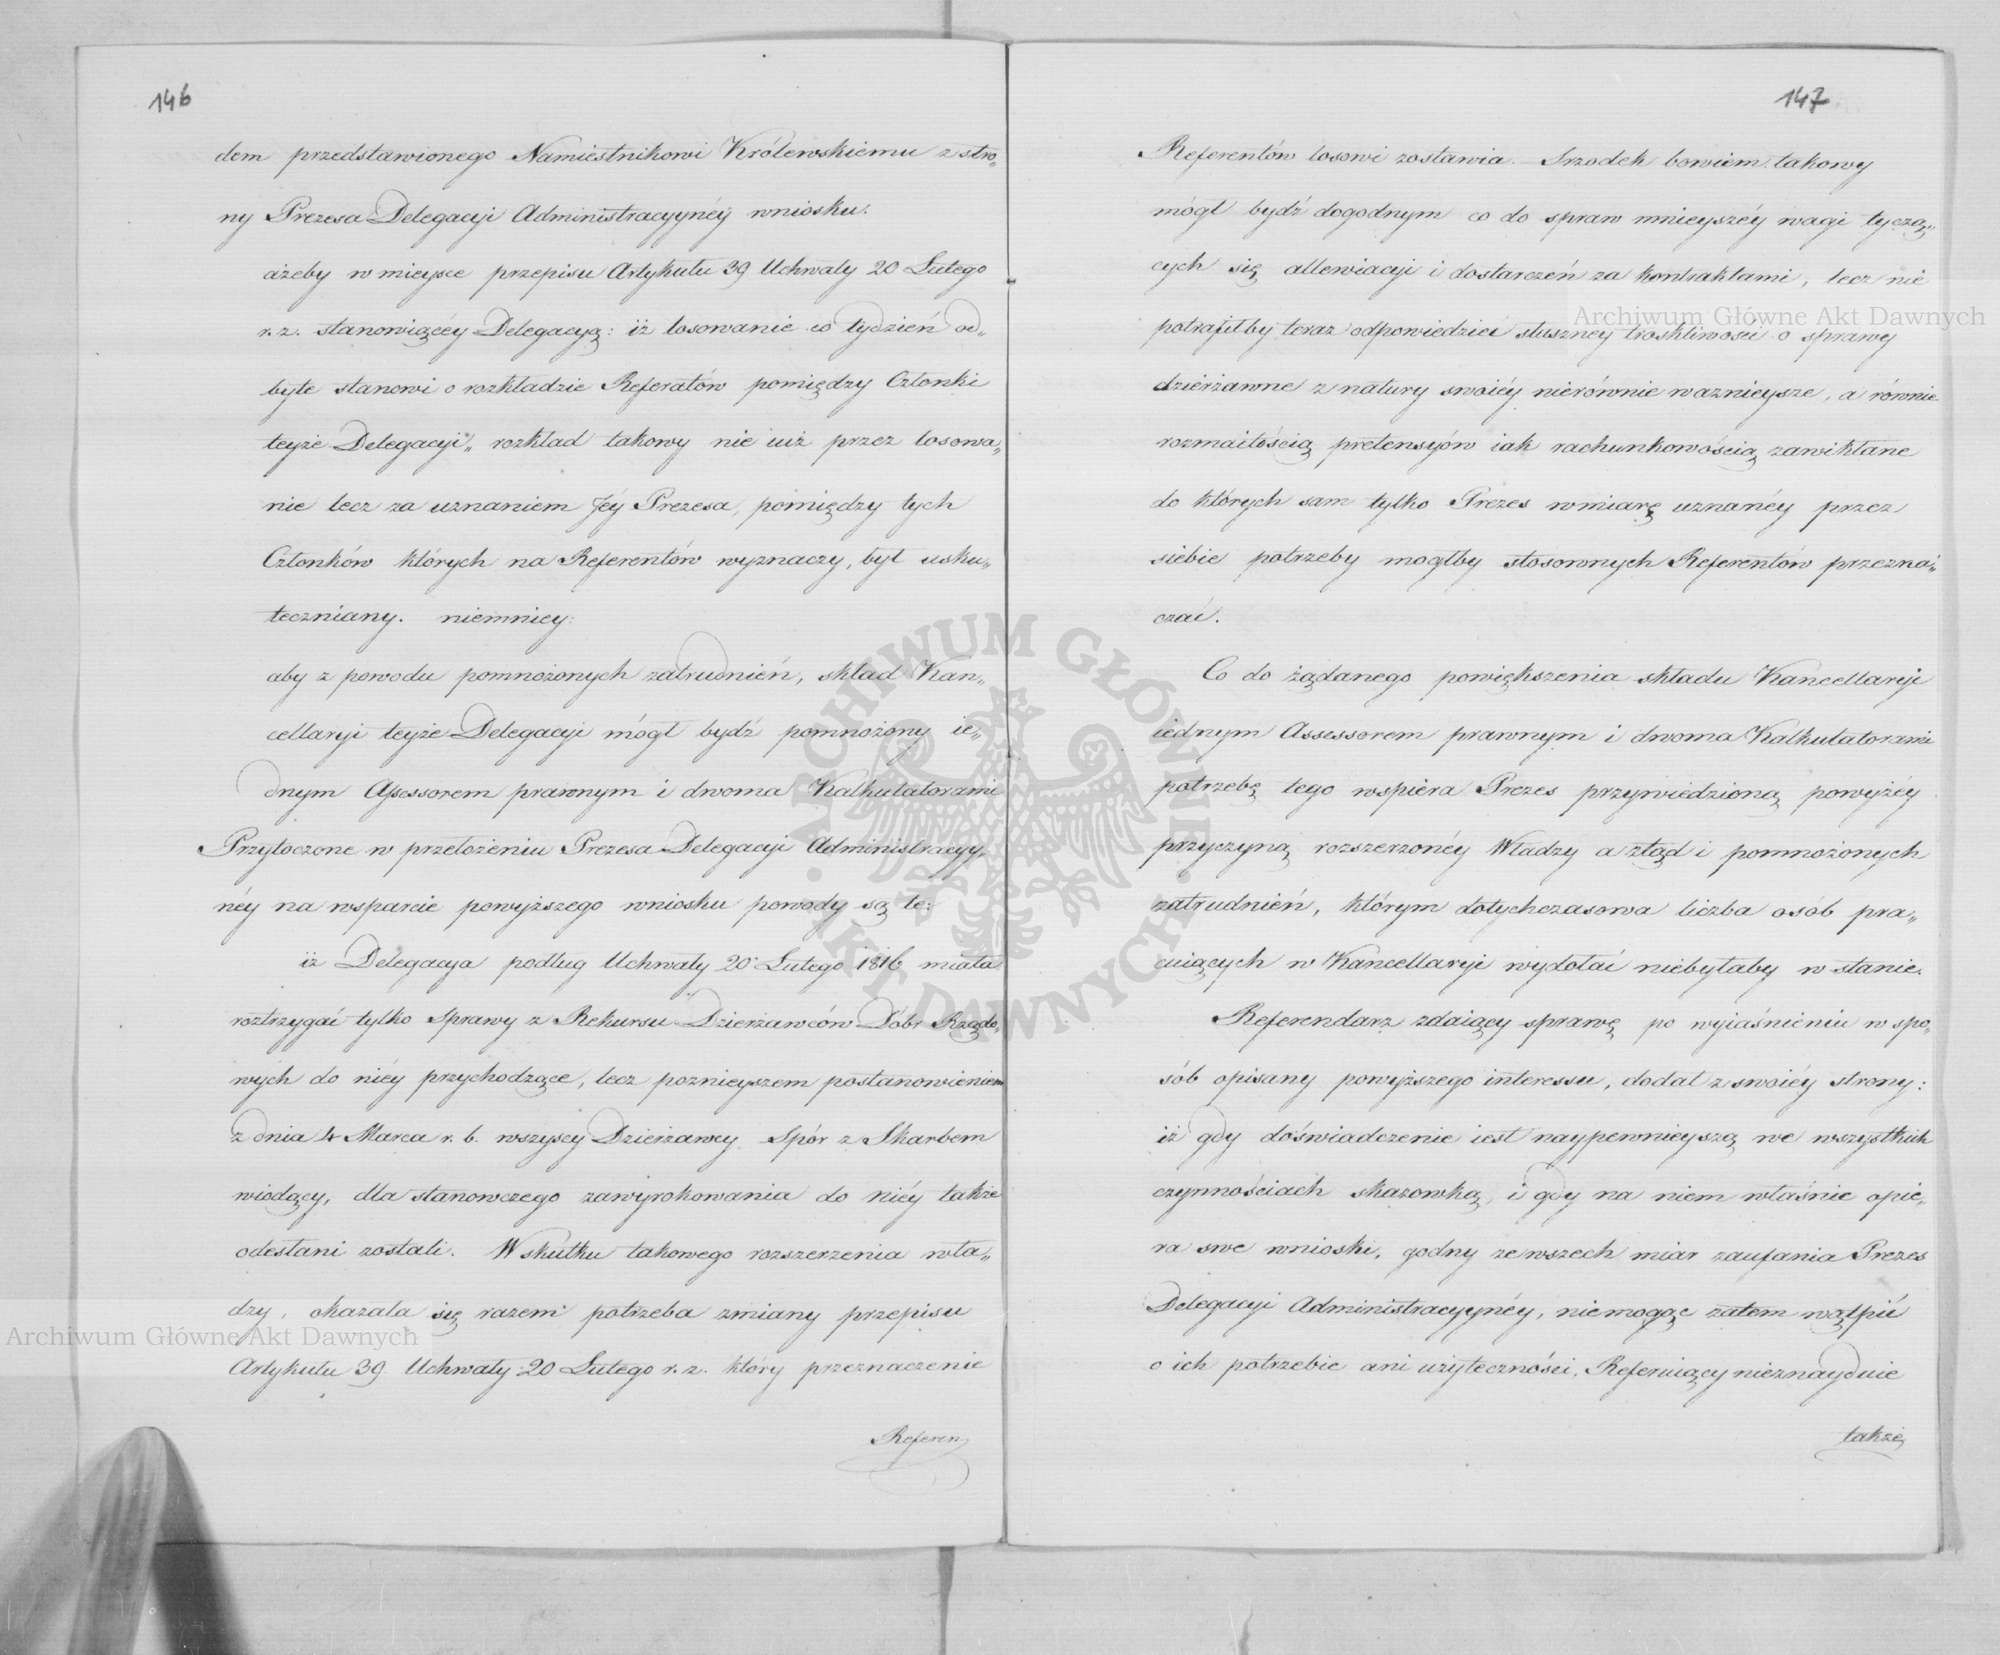 146
dem przedstawionego Namiestnikowi Królewskiemu z stro„
ny Prezesa Delegacyi Administracyynéy wniosku.
ażeby w mieysce przepisu Artykułu 39 Uchwały 20 Lutego
r. z. stanowiącéy Delegacyą: iż losowanie co tydzień od„
byte stanowi o rozkładzie Referatów pomiędzy Członki
teyże Delegacyi„ rozkład takowy nie iuż przez losowa„
nie lecz za uznaniem Jéy Prezesa, pomiędzy tych
Członków których na Referentów wyznaczy, był usku„
teczniany. niemniey:
aby z powodu pomnożonych zatrudnień, skład Kan„
cellaryi teyże Delegacyi mógł bydź pomnożony ie„
dnym Assessorem prawnym i dwoma Kalkulatorami
Przytoczone w przełożeniu Prezesa Delegacyi Administracyy„
néy na wsparcie powyższego wniosku powody są te:
iż Delegacya podług Uchwały 20 Lutego 1816 miała
roztrzygać tylko Sprawy z Rekursu Dzierżawców Dóbr Rządo„
wych do niéy przychodzące, lecz poznieyszem postanowieniem
z dnia 4 Marca r. b. wszyscy Dzierżawcy Spór z Skarbem
wiodący, dla stanowczego zawyrokowania do niéy także
odesłani zostali. W skutku takowego rozszerzenia wła„
dzy, okazała się razem potrzeba zmiany przepisu
Artykułu 39 Uchwały 20 Lutego r. z. który przeznaczenie
Referen
147
Referentów losowi zostawia. Srzodek bowiem takowy
mógł bydź dogodnym co do spraw mnieyszéy wagi tyczą„
cych się allewiacyi i dostarczeń za kontraktami, lecz nie
potrafiłby teraz odpowiedzieć słuszney troskliwości o sprawy
dzierżawne z natury swoiéy nierównie waznieysze, a równie
rozmaitością pretensyów iak rachunkowością zawikłane
do których sam tylko Prezes w miarę uznanéy przez
siebie potrzeby mogłby stosownych Referentów przezna„
czać.
Co do żądanego powiększenia składu Kancellaryi
iednym Assessorem prawnym i dwoma Kalkulatorami
potrzebę tego wspiera Prezes przywiedzioną powyżéy
przyczyną rozszerzonéy Władzy a ztąd i pomnożonych
zatrudnień, którym dotychczasowa liczba osób pra„
cuiących w Kancellaryi wydołać niebyłaby w stanie.
Referendarz zdaiący sprawę po wyiaśnieniu w spo„
sób opisany powyższego interessu, dodał z swoiéy strony:
iż gdy doświadczenie iest naypewnieyszą we wszystkich
czynnościach skazowką, i gdy na niem właśnie opie„
ra swe wnioski, godny ze wszech miar zaufania Prezes
Delegacyi Administracyynéy, niemogąc zatem wątpić
o ich potrzebie ani użyteczności, Referuiący nieznayduie
także
Archiwum Główne Akt Dawnych
Archiwum Główne Akt Dawnych
ARCHIWUM GŁÓWNE AKT DAWNYCH